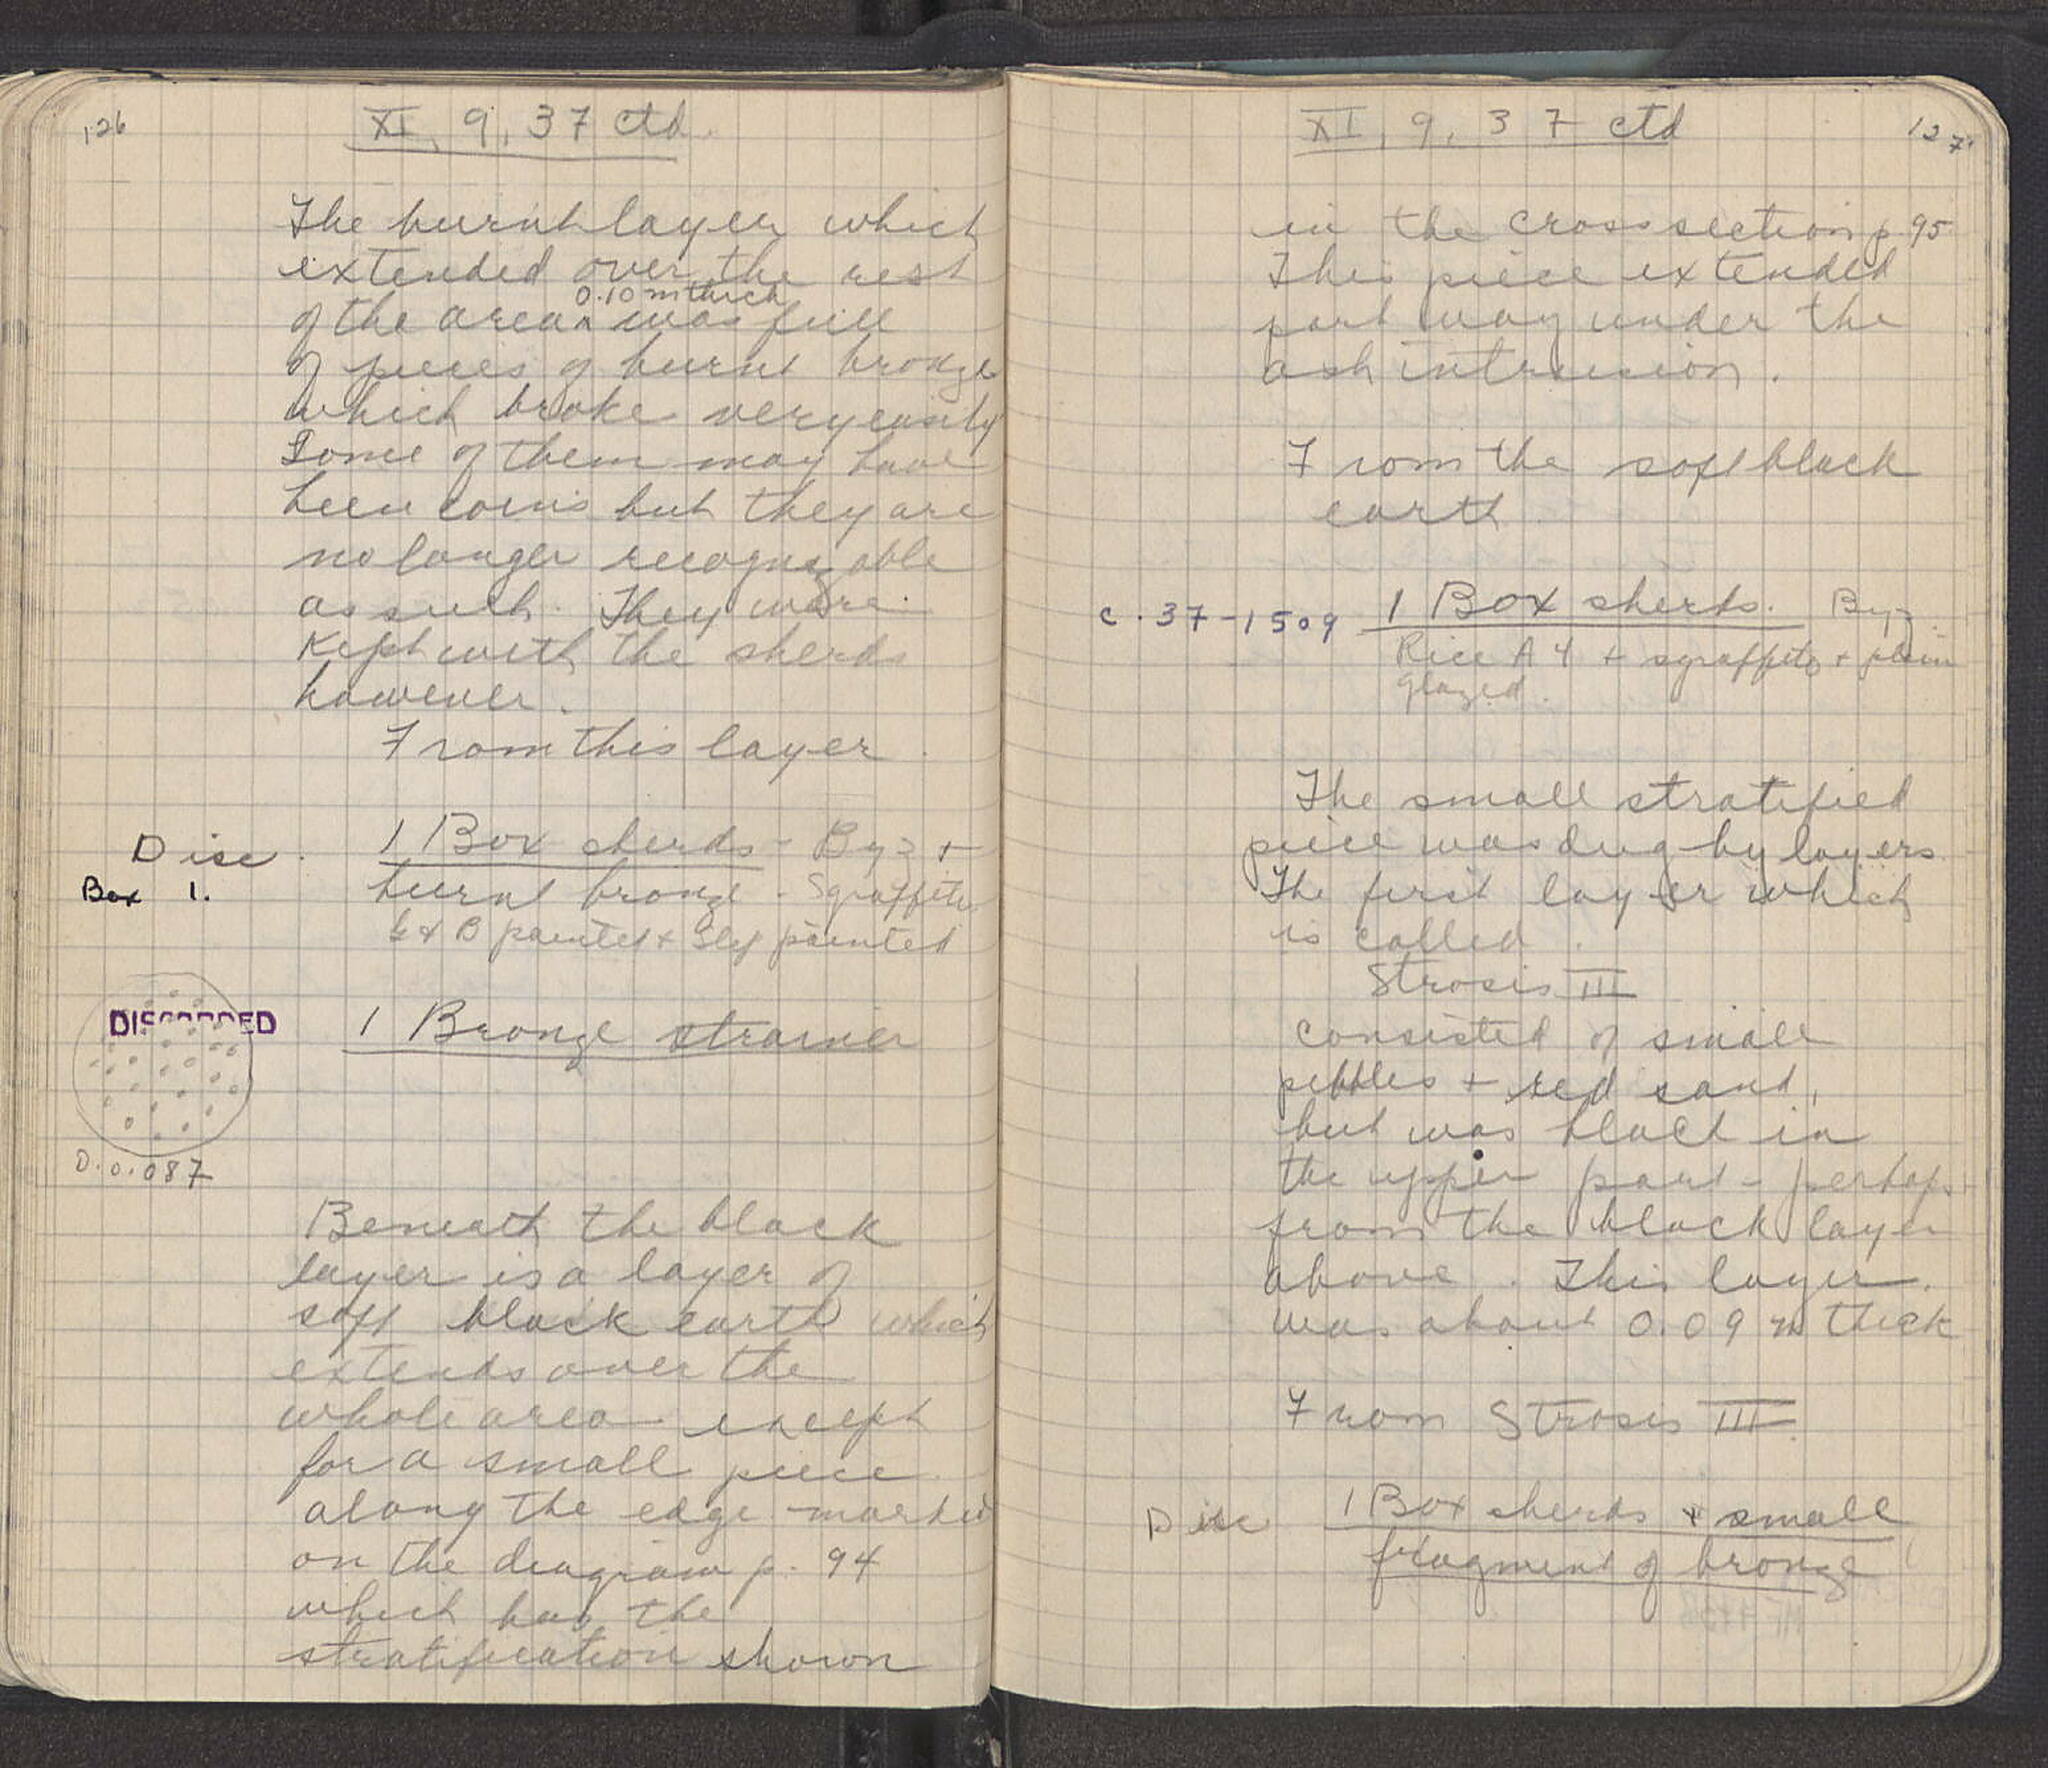 126
XI, 9, 37 ctd.
The burnt layer which
extended over the rest
0.10 m thick
of the area ^ was full
of pieces of burnt bronze
which broke very easily
Some of them may have
been coins but they are
no longer recognizable
as such. They were
kept with the sherds
however.
From this layer.
Disc. 1 Box sherds - Byz +
Box 1. burnt bronze - Sgraffito
G & B painted + Slip painted
DISCARDED
1 Bronze strainer
D. 0.087
Beneath the black
layer is a layer of
soft black earth which
extends over the
whole area except
for a small piece
along the edge marked
on the diagram p. 94
which has the
stratification shown
127.
XI, 9, 37 ctd
in the cross section p. 95
This piece extended
part way under the
ash intrusion.
From the soft black
earth
C. 37-1509 1 Box sherds. Byz.
Rice A 4 + sgraffito + plain
glazed.
The small stratified
piece was dug by layers
The first layer which
is called.
Strosis III
consisted of small
pebbles + red sand,
but was black in
the upper part - perhaps
from the black layer
above. This layer
was about 0.09 m thick
From Strosis III.
Disc 1 Box sherds + small
fragment of bronze